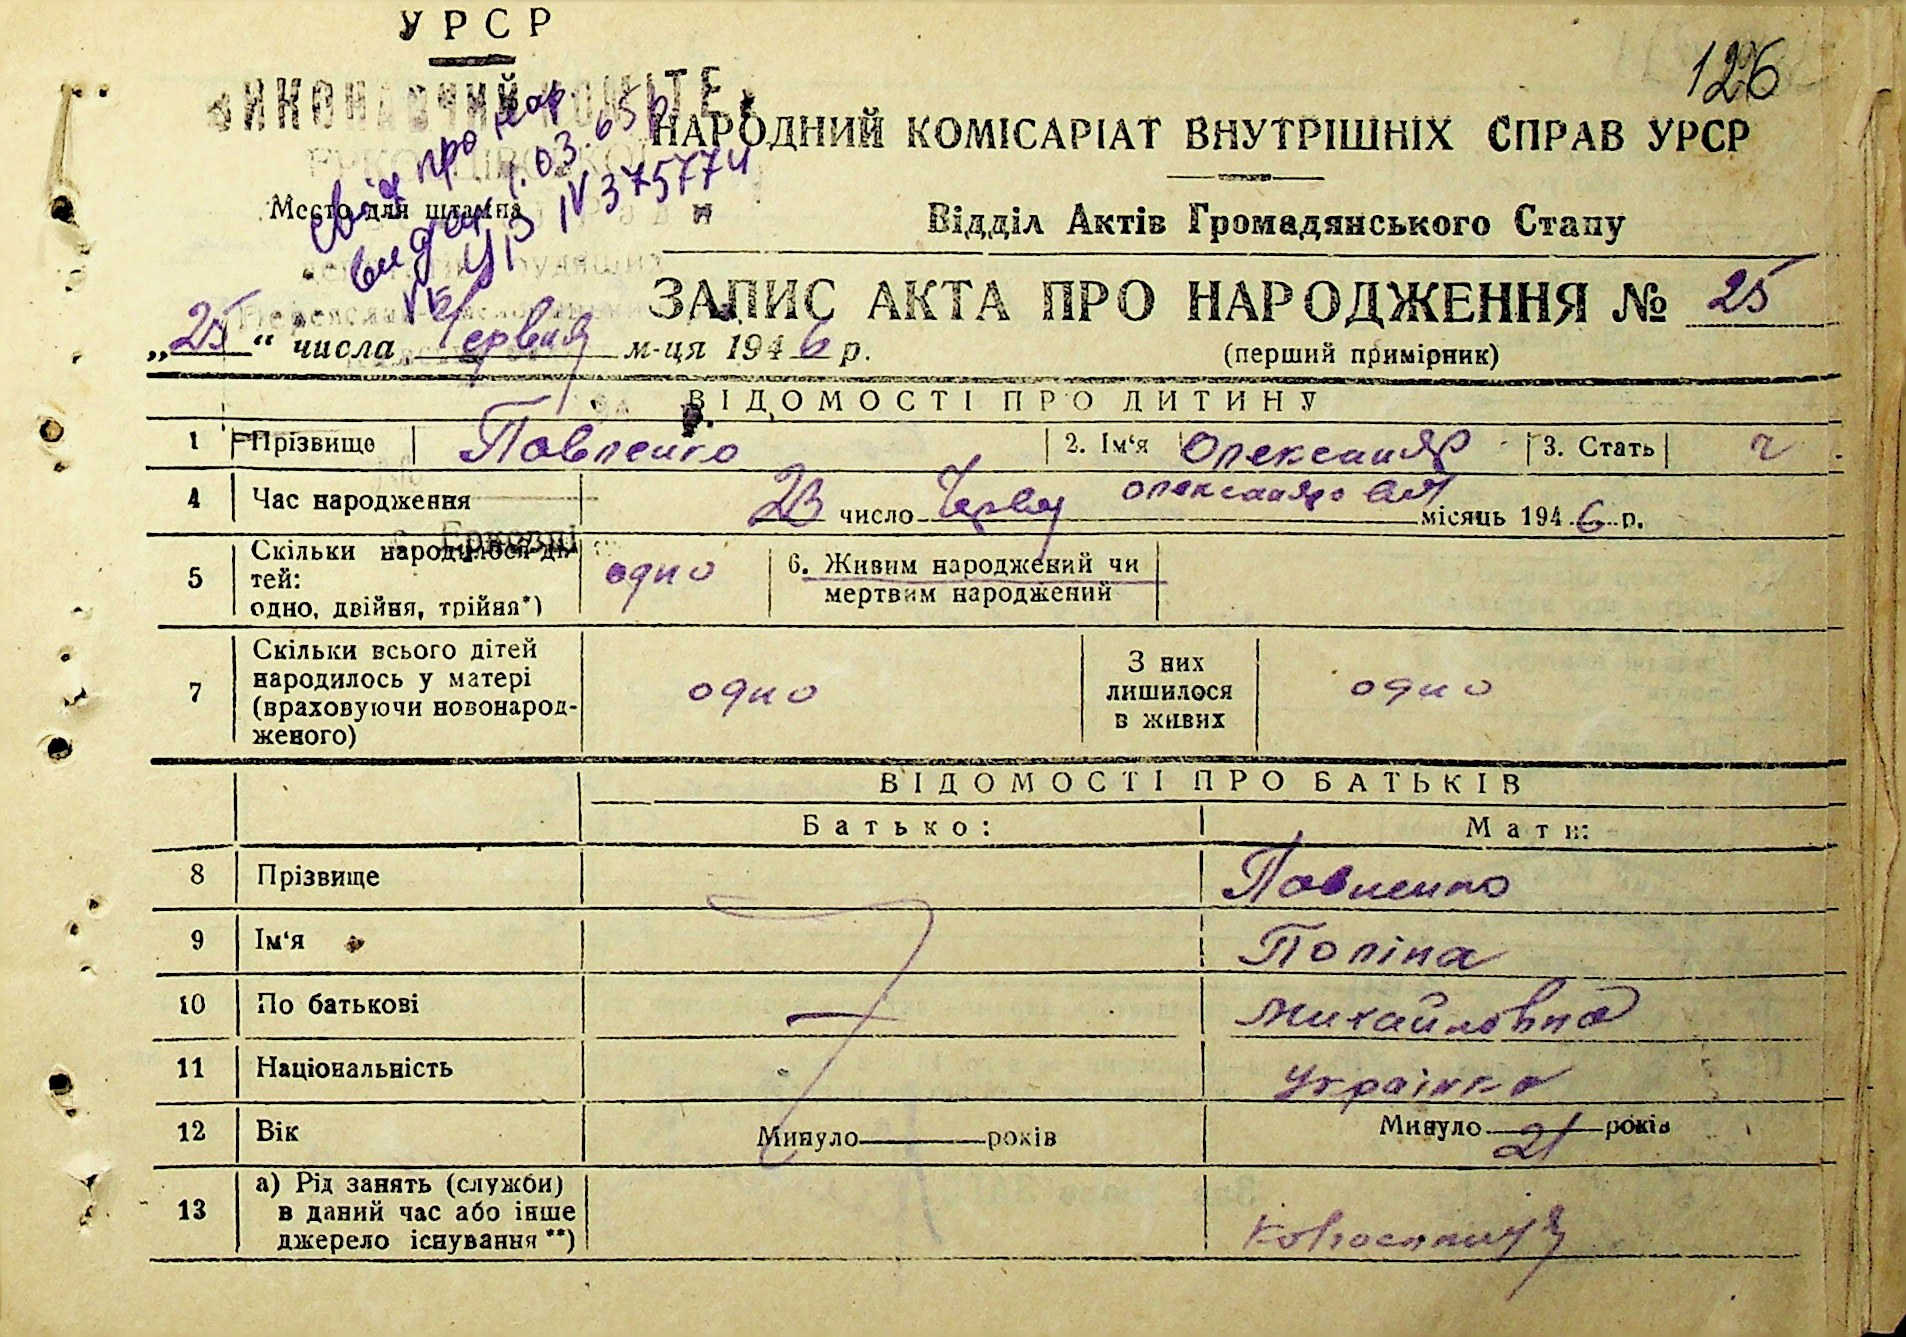 УРСР
126
ВИКОНАВЧИЙ КОМІТЕТ
НАРОДНИЙ КОМІСАРІАТ ВНУТРІШНІХ СПРАВ УРСР
свід про нар
видан 1.03.65р
УР IV 375774
Место для штампа
Відділ Актів Громадянського Стану
ЗАПИС АКТА ПРО НАРОДЖЕННЯ № 25
„25“ числа Червня м-ця 1946 р.
(перший примірник)
ВІДОМОСТІ ПРО ДИТИНУ
1 Прізвище Павленко 2. Ім‘я Олександр 3. Стать ч
Олександрович
4 Час народження 23 число Червня місяць 1946 р.
5 Скільки народилося ді-
тей:
одно, двійня, трійня*) одно 6. Живим народжений чи
мертвим народжений
7 Скільки всього дітей
народилось у матері
(враховуючи новонарод-
женого) одно З них
лишилося
в живих одно
ВІДОМОСТІ ПРО БАТЬКІВ
Батько: Мати:
8 Прізвище Павленко
9 Ім‘я Поліна
10 По батькові Михайловна
11 Національність Українка
12 Вік Минуло років Минуло 21 років
13 а) Рід занять (служби)
в даний час або інше
джерело існування**) Колгоспниця